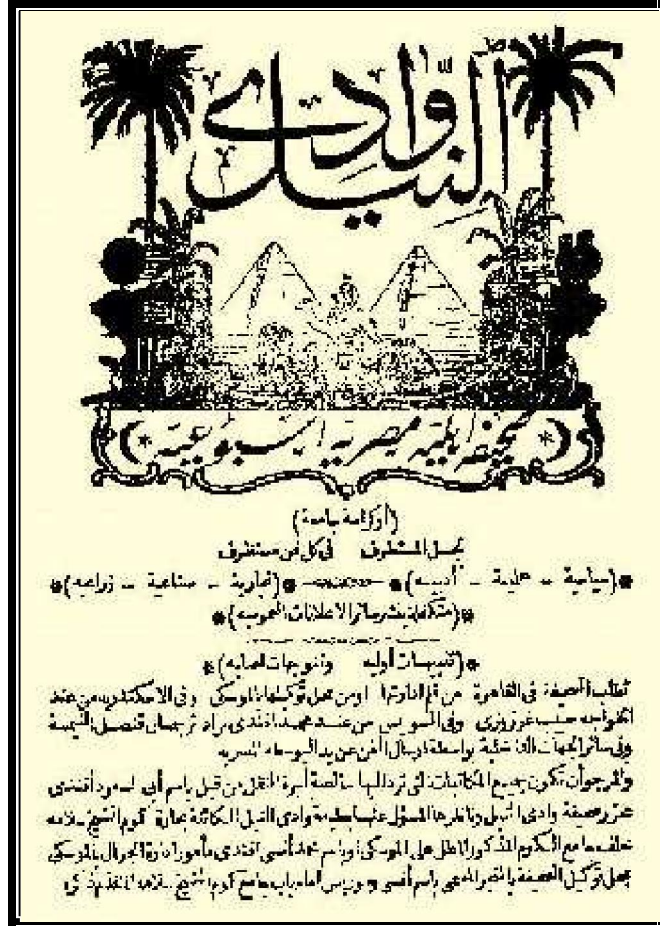 وادي النيل
صحيفة أهلية مصرية أسبوعية
(أو كراسة جامعة)
لجمل المستظرف في كل فن مستطرف
(سياسية – علمية – أدبيه) (تجارية – صناعية – زراعيه)
(متكفلة بنشر سائر الاعلانات العموميه)
(تنبيهات أوليه وتنويهات اصليه)
تطلب الصحيفة في القاهرة من قلم ادارتها او من محل توكيلها بالموسكي وفي الاسكندريه من عند
الخواجه حبيب غرزوزي وفي السويس من عند محمد افندي مراد ترجمان قنصل النيمسة
وفي سائر الجهات الداخلية بواسطة ارسال الثمن عن يد البوسطه المصريه
والمرجو أن تكون جميع المكاتبات التي ترد اليها خالصة أجرة النقل من قبل باسم أبي السعود أفندي
محرر صحيفة وادى النيل وناظرها المسؤل عنها بمطبعة وادى النيل الكائنة بحارة كوم الشيخ سلامه
خلف جامع الكوم المذكور المطل على الموسكي او باسم محمد أنسي افندي مأمور ادارة الجرنال بالموسكي
بمحل توكيل الصحيفة باسم أنسي امام باب جامع كوم الشيخ سلامه المتقدم ذكره